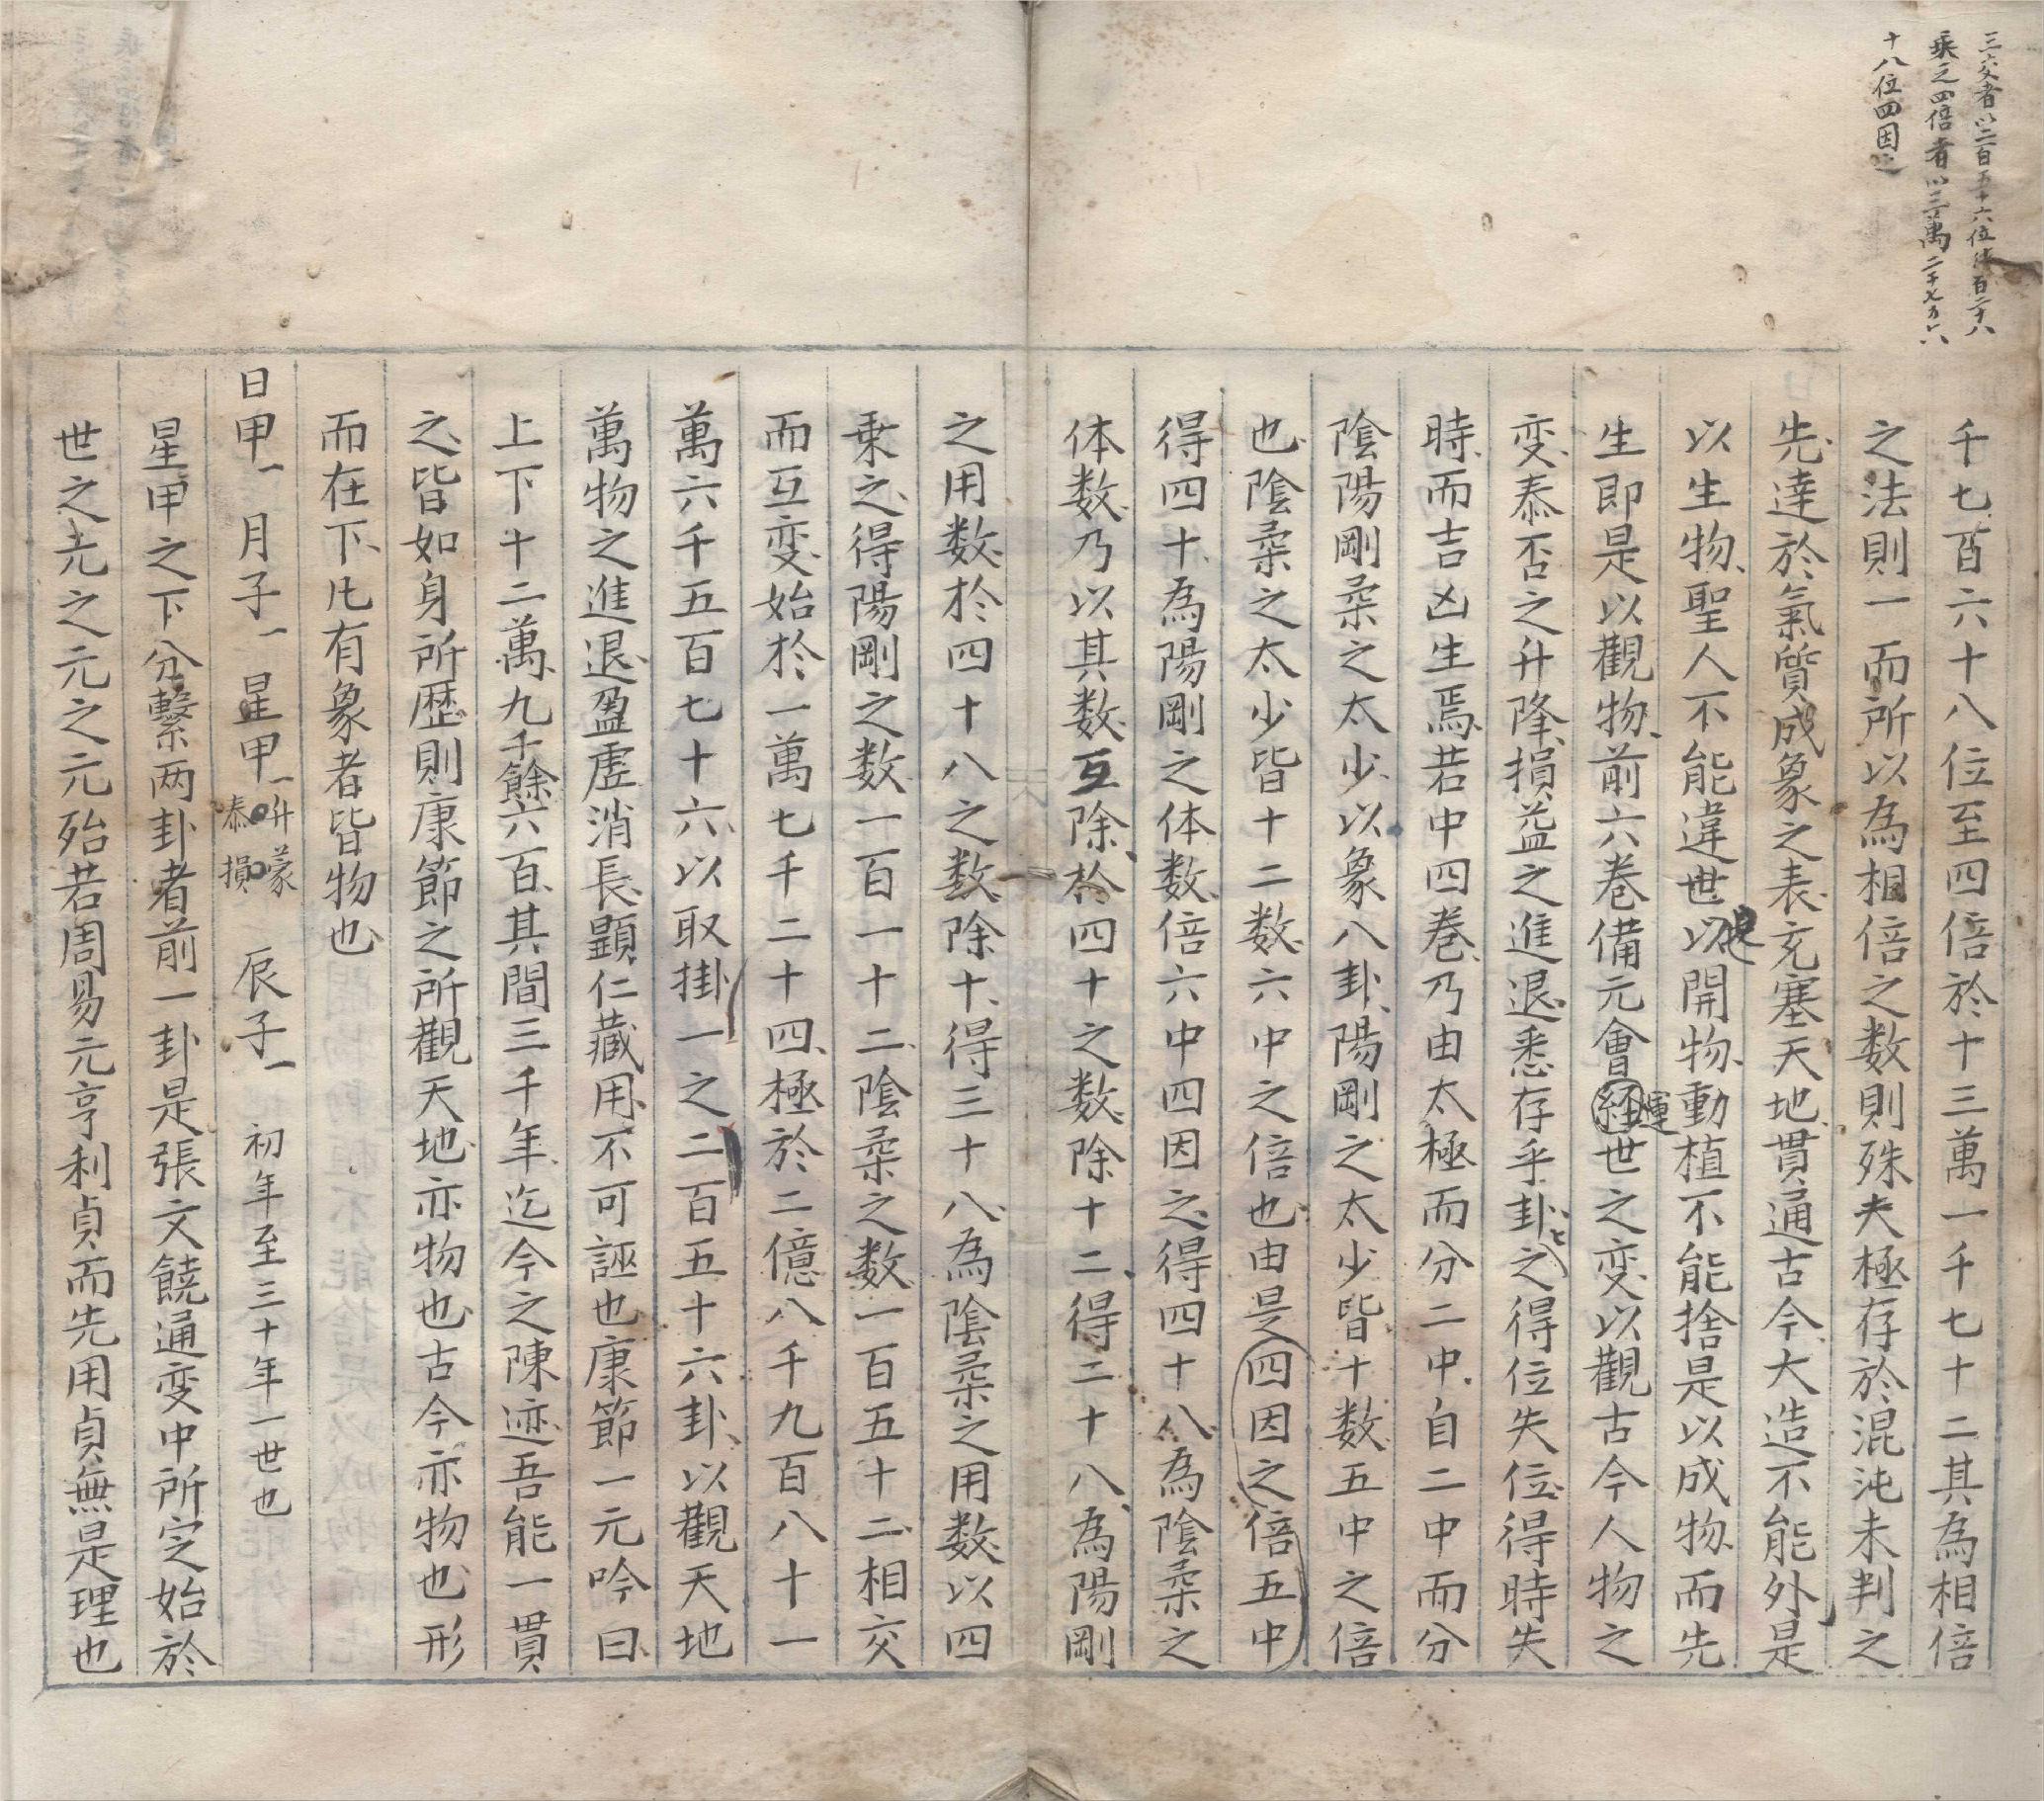 三交者以二百五十六位使百二十八
乗之四倍者以三萬二千七百六
十八位四因之
千七百六十八位至四倍於十三萬一千七十二其為相倍
之法則一而所以為相倍之数則殊夫極存於混沌未判之
先達於氣質成象之表充塞天地貫通古今大造不能外是
以生物聖人不能違世以是開物動植不能捨是以成物而先
生即是以觀物前六巻備元會経運世之変以觀古今人物之
変泰否之升降損益之進退悉存乎卦之得位失位得時失
時而吉凶生焉若中四巻乃由太極而分二中自二中而分
陰陽剛柔之太少以象八卦陽剛之太少皆十数五中之倍
也陰柔之太少皆十二数六中之倍也由是四因之倍五中
得四十為陽剛之体数倍六中四因之得四十八為陰柔之
体数乃以其数互除於四十之数除十二得二十八為陽剛
之用数於四十八之数除十得三十八為陰柔之用数以四
乗之得陽剛之数一百一十二陰柔之数一百五十二相交
而互変始於一萬七千二十四極於二億八千九百八十一
萬六千五百七十六以取掛一之二百五十六卦以觀天地
萬物之進退盈虚消長顕仁藏用不可誣也康節一元吟曰
上下十二萬九千餘六百其間三千年迄今之陳迹吾能一貫
之皆如身所歴則康節之所觀天地亦物也古今亦物也形
而在下凡有象者皆物也
日甲一 月子一 星甲一 升蒙
泰損 辰子一 初年至三十年一世也
星甲之下分繫两卦者前一卦是張文饒通変中所定始於
世之元之元之元殆若周易元亨利貞而先用貞無是理也